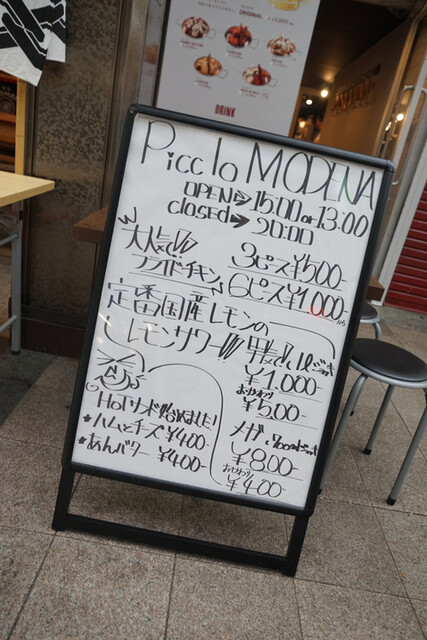 ORIGINAL
DRINK
Picclo MODENA
OPEN⇒15:00 or 13:00
closed→20:00
大人気の
フライドチキン
3ピース¥500-
6ピース¥1,000-
定番国産レモンの
レモンサワー
¥1,000-
おかわり
¥500-
メガ
¥800-
おかわり
¥400-
HOTサンド始めました!
*ハムチーズ ¥400-
*あんバター ¥400-